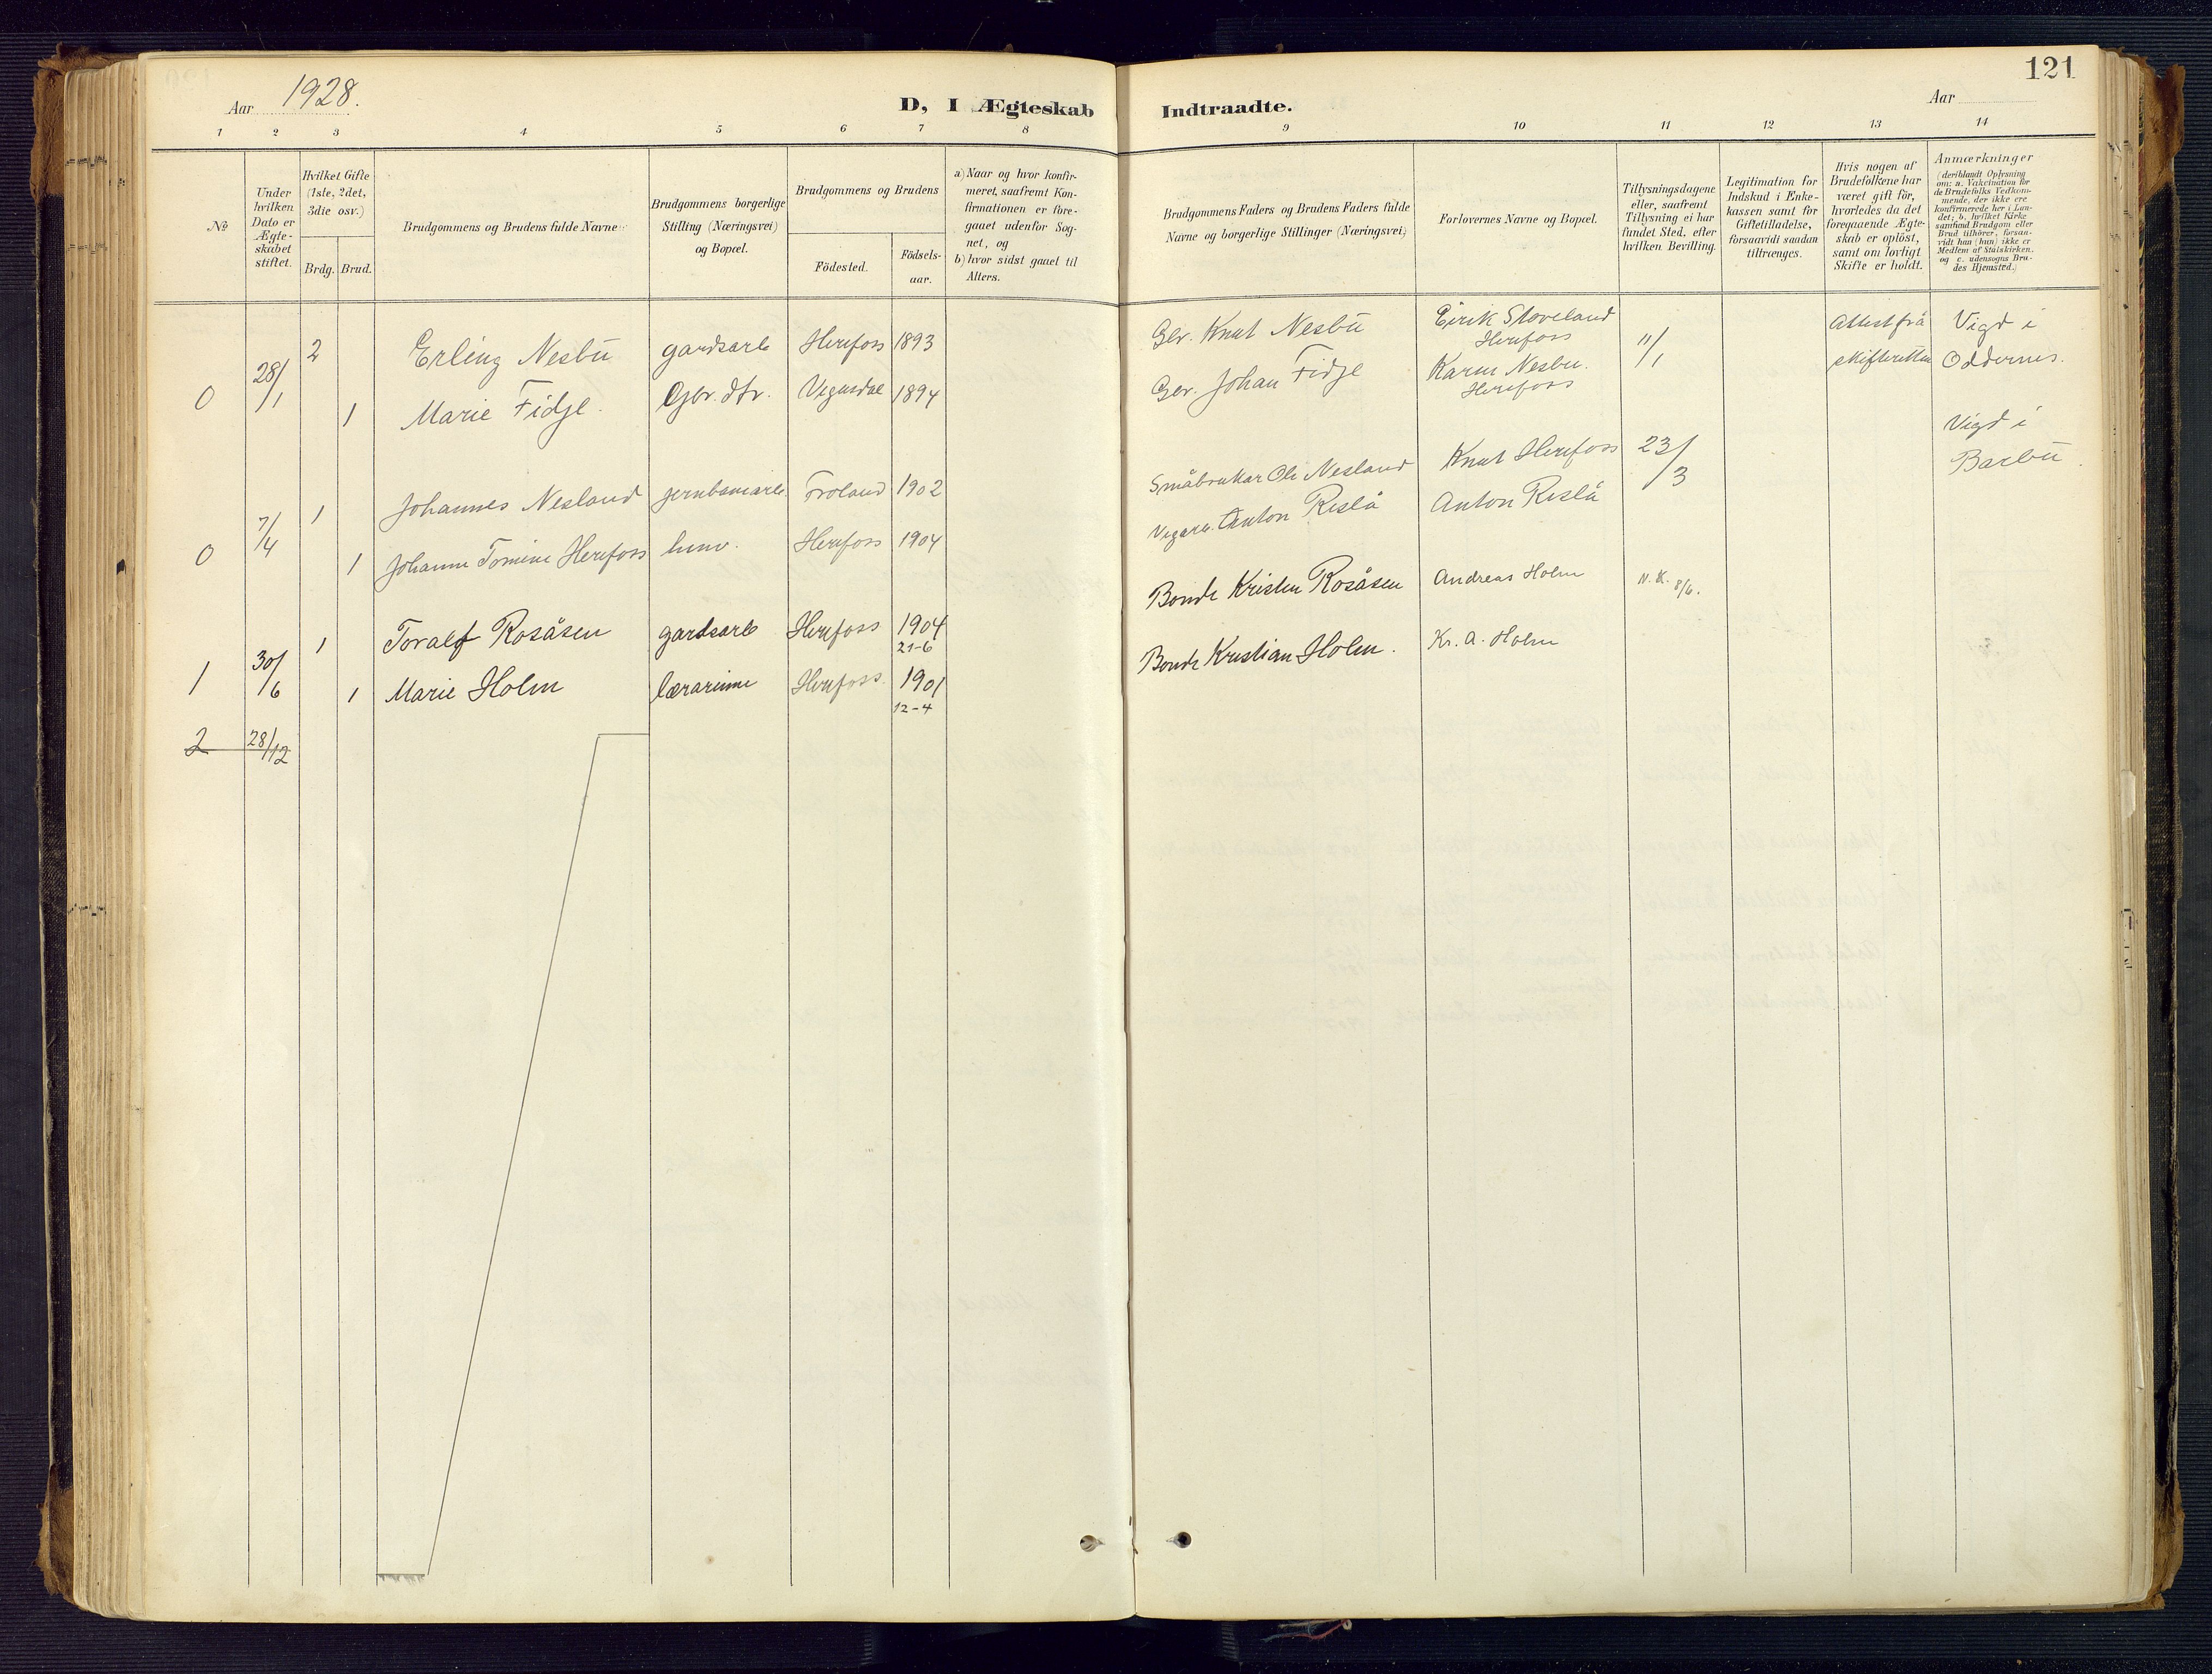 Aar 1928.
D, I Ægteskab Indtraadte.
Aar
121
1 2 3 4 5 6 7 8 9 10 11 12 13 14
No.
Under
hvilken
Dato er
Ægte-
skabet
stiftet.
Hvilket Gifte
(1ste, 2det,
3die osv.)
Brdg. Brud.
Brudgommens og Brudens fulde Navne.
Brudgommens borgerlige
Stilling (Næringsvei)
og Bopæl.
Brudgommens og Brudens
Födested.
Födsels-
aar.
a) Naar og hvor konfir-
meret, saafremt Kon-
firmationen er fore-
gaaet udenfor Sog-
net, og
b) hvor sidst gaaet til
Alters.
Brudgommens Faders og Brudens Faders fulde
Navne og borgerlige Stillinger (Næringsvei)
Forlovernes Navne og Bopæl.
Tillysningsdagene
eller, saafremt
Tillysning ei har
fundet Sted, efter
hvilken Bevilling.
Legitimation for
Indskud i Enke-
kassen samt for
Giftetilladelse,
forsaavidt saadan
tiltrænges.
Hvis nogen af
Brudefolkene har
været gift för,
hvorledes da det
foregaaende Ægte-
skab er oplöst,
samt om lovligt
Skifte er holdt.
Anmærkninger
(deriblandt Oplysning
om: a. Vakcination for
de Brudefolks Vedkom-
mende, der ikke ere
konfirmerede her i Lan-
det; b. hvilket Kirke
samfund Brudgom eller
Brud tilhörer, forsaa-
vidt han (hun) ikke er
Medlem af Statskirken,
og c. udensogns Bru-
des Hjemsted.)
0 28/1 2 Erling Nesbu gardsarb Herefoss 1893 Gbr. Knut Nesbu Eirik Stoveland Herefoss 11/1 Attest frå skifteretten Vigd i Oddernes.
1 Marie Fidje. Gbr. dtr. Vegusdal 1894 Gbr. Johan Fidje Karen Nesbu. Herefoss
0 7/4 1 Johannes Nesland jernbanearb. Froland 1902 Småbrukar Ole Nesland Knut Herefoss 23/3 Vigd i Barbu.
1 Johanne Tomine Herefoss Herefoss 1904 Vegarb. Anton Reslå Anton Reslå
1 30/6 1 Toralf Rosåsen gardsarb Herefoss 1904 21-6 Bonde Kristen Rosåsen Andreas Holm N. K. 8/6.
1 Marie Holm lærarinne Herefoss 1901 12-4 Bonde Kristian Holm. Kr. A. Holm
2 28/12